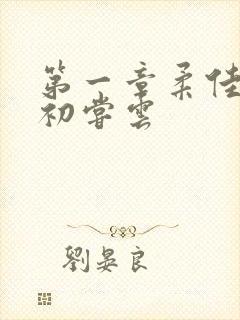 第一章柔佳
初尝云
刘晏良